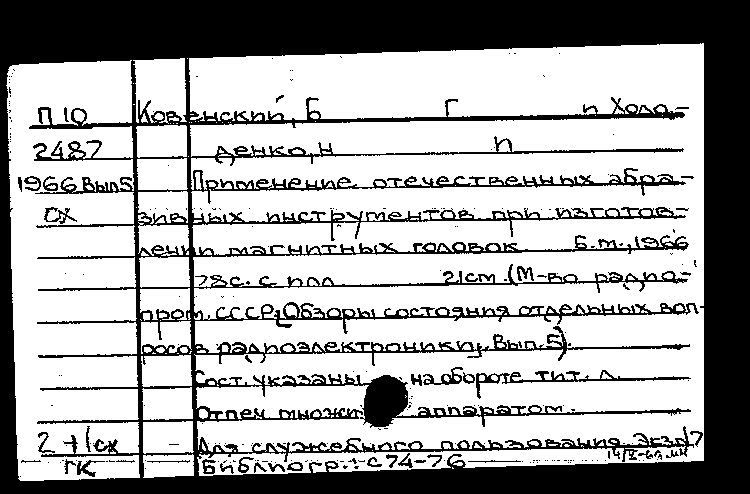 П10 Ковенский, Б Г и Холо-
2487 денко, Н П
1966 Вып5 Применение отечественных абра-
сх зивных инструментов при изготов-
лении магнитных головок Б.м., 1966
78с. с илл. 21см. (М-во радио-
пром. СССР, Обзоры состояния отдельных воп-
росов радиоэлектроники, Вып. 5).
Сост. указаны на обороте тит. л.
Отпеч множит аппаратом.
2 +1сх Для служебного пользования Экз
ГК Библиогр.: с 74-76